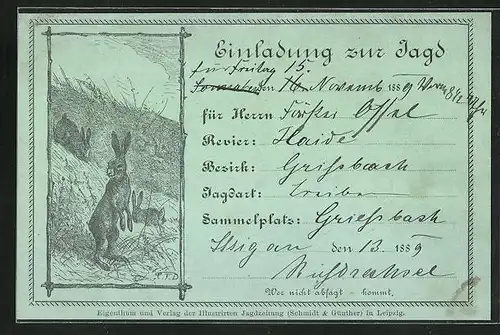 Einladung zur Jagd
für Freitag 15.
den 16. Novemb 1889 Vorm 8½ Uhr
für Herrn Förster Ossel
Revier: Haide
Bezirk: Grießbach
Jagdart: Treiben
Sammelplatz: Grießbach
den 13. 1889
Wer nicht absagt – kommt.
Eigenthum und Verlag der Illustrirten Jagdzeitung (Schmidt & Günther) in Leipzig.